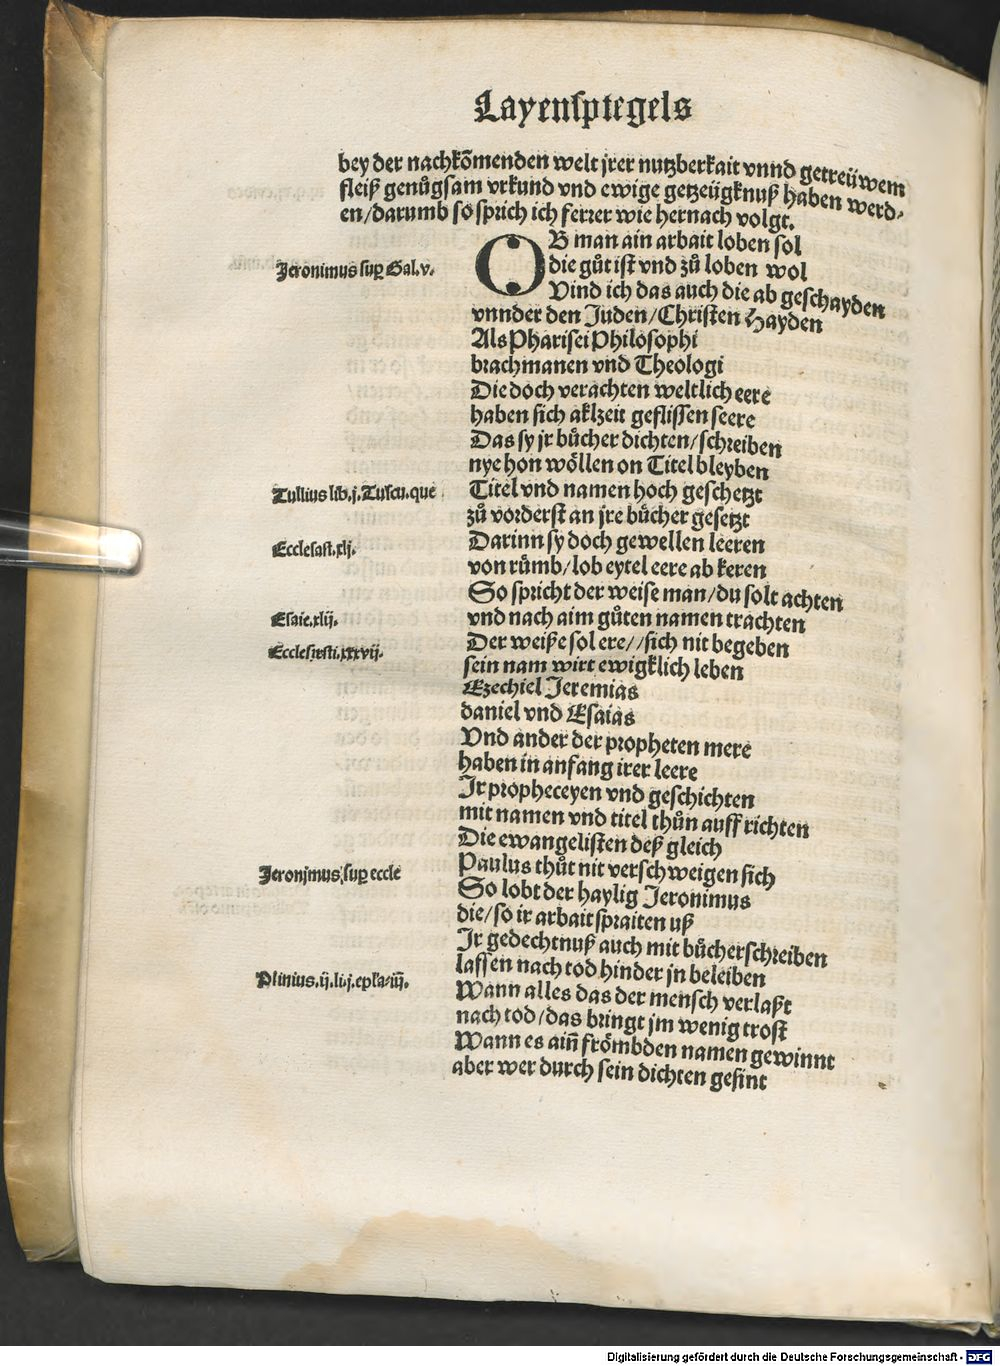 Layenspiegels
bey der nachkõmenden welt jrer nutzberkait vnnd getreüwem
fleiß genůgsam vrkund vnd ewige getzeügknuß haben werd-
en/darumb so sprich ich ferrer wie hernach volgt.
OB man ain arbait loben sol
Jeronimus suꝑ Gal.v.
die gůt ist vnd zů loben wol
Vind ich das auch die ab geschayden
vnnder den Juden/Christen Hayden
Als Pharisei Philosophi
brachmanen vnd Theologi
Die doch verachten weltlich eere
haben sich aklzeit geflissen seere
Das sy jr bůcher dichten/schreiben
nye hon wöllen on Titel bleyben
Tullius lib.j.Tuscu.que
Titel vnd namen hoch geschetzt
zů vorderst an jre bůcher gesetzt
Darinn sy doch gewellen leeren
Ecclesast.xlj.
von růmb/lob eytel eere ab keren
So spricht der weise man/du solt achten
Esaie.xlij.
vnd nach aim gůten namen trachten
Der weiße sol ere//sich nit begeben
Ecclesiesti.xxxvij.
sein nam wirt ewigklich leben
Ezechiel Jeremias
daniel vnd Esaias
Vnd ander der propheten mere
haben in anfang irer leere
Jr propheceyen vnd geschichten
mit namen vnd titel thůn auff richten
Die ewangelisten deß gleich
Paulus thůt nit verschweigen sich
Jeronjmus suꝑ eccle
So lobt der haylig Jeronimus
die/so ir arbait spraiten uß
Jr gedechtnuß auch mit bůcherschreiben
lassen nach tod hinder jn beleiben
Plinius.ij.li.j.epła.iij.
Wann alles das der mensch verlaßt
nach tod/das bringt jm wenig trost
Wann es ain̄ frömbden namen gewinnt
aber wer durch sein dichten gesint
Digitalisierung gefördert durch die Deutsche Forschungsgemeinschaft - DFG